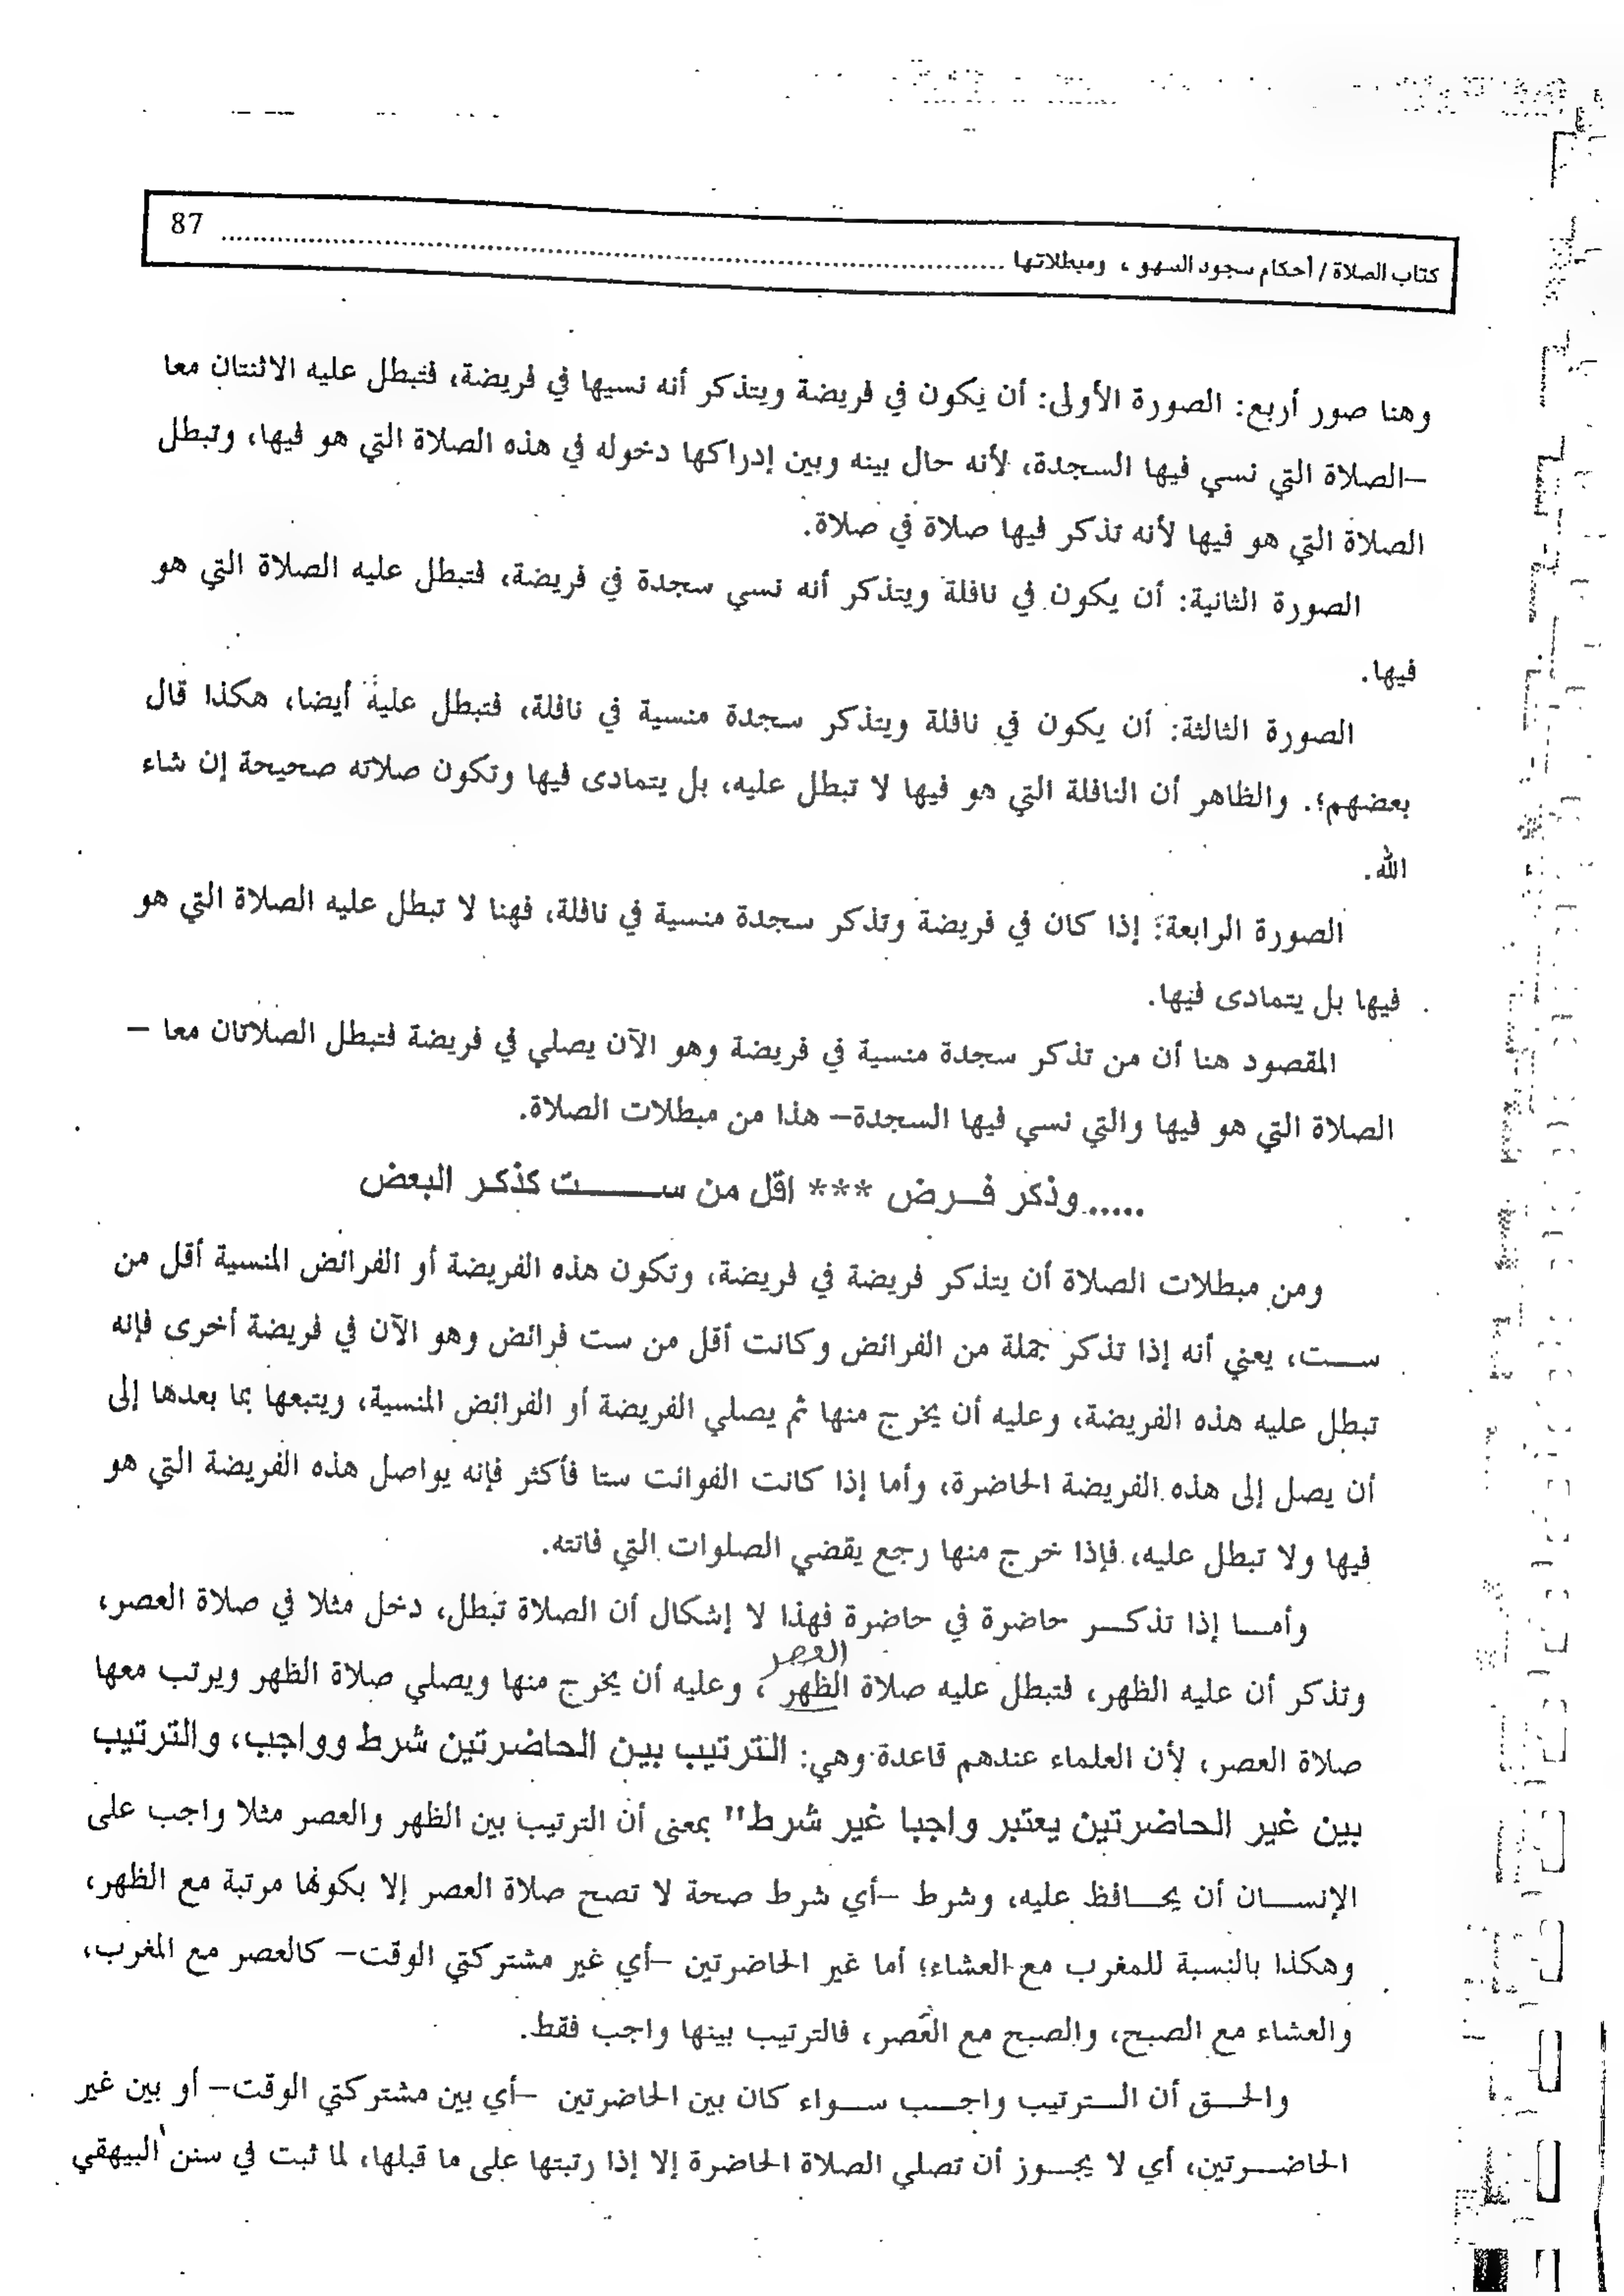 كتاب الصلاة / أحكام سجود السهو، ومبطلاتها ........................................ 87
وهنا صور أربع: الصورة الأولى: أن يكون في فريضة ويتذكر أنه نسيها في فريضة، فتبطل عليه الاثنتان معا
–الصلاة التي نسي فيها السجدة، لأنه حال بينه وبين إدراكها دخوله في هذه الصلاة التي هو فيها، وتبطل
الصلاة التي هو فيها لأنه تذكر فيها صلاة في صلاة.
الصورة الثانية: أن يكون في نافلة ويتذكر أنه نسي سجدة في فريضة، فتبطل عليه الصلاة التي هو
فيها.
الصورة الثالثة: أن يكون في نافلة ويتذكر سجدة منسية في نافلة، فتبطل عليه أيضا، هكذا قال
بعضهم؛. والظاهر أن النافلة التي هو فيها لا تبطل عليه، بل يتمادى فيها وتكون صلاته صحيحة إن شاء
الله.
الصورة الرابعة: إذا كان في فريضة وتذكر سجدة منسية في نافلة، فهنا لا تبطل عليه الصلاة التي هو
فيها بل يتمادى فيها.
المقصود هنا أن من تذكر سجدة منسية في فريضة وهو الآن يصلي في فريضة فتبطل الصلاتان معا –
الصلاة التي هو فيها والتي نسي فيها السجدة– هذا من مبطلات الصلاة.
.....وذكر فـرض *** اقل من ســـــت كذكر البعض
ومن مبطلات الصلاة أن يتذكر فريضة في فريضة، وتكون هذه الفريضة أو الفرائض المنسية أقل من
ســت، يعني أنه إذا تذكر جملة من الفرائض وكانت أقل من ست فرائض وهو الآن في فريضة أخرى فإنه
تبطل عليه هذه الفريضة، وعليه أن يخرج منها ثم يصلي الفريضة أو الفرائض المنسية، ويتبعها بما بعدها إلى
أن يصل إلى هذه الفريضة الحاضرة، وأما إذا كانت الفوائت ستا فأكثر فإنه يواصل هذه الفريضة التي هو
فيها ولا تبطل عليه، فإذا خرج منها رجع يقضي الصلوات التي فاتته.
وأمــا إذا تذكــر حاضرة في حاضرة فهذا لا إشكال أن الصلاة تبطل، دخل مثلا في صلاة العصر،
العصر
وتذكر أن عليه الظهر، فتبطل عليه صلاة الظهر، وعليه أن يخرج منها ويصلي صلاة الظهر ويرتب معها
صلاة العصر، لأن العلماء عندهم قاعدة وهي: الترتيب بين الحاضرتين شرط وواجب، والترتيب
بين غير الحاضرتين يعتبر واجبا غير شرط" بمعنى أن الترتيب بين الظهر والعصر مثلا واجب على
الإنســان أن يحــافظ عليه، وشرط –أي شرط صحة لا تصح صلاة العصر إلا بكونها مرتبة مع الظهر،
وهكذا بالنسبة للمغرب مع العشاء؛ أما غير الحاضرتين –أي غير مشتركتي الوقت– كالعصر مع المغرب،
والعشاء مع الصبح، والصبح مع العصر، فالترتيب بينها واجب فقط.
والحــق أن الــترتيب واجــب ســواء كان بين الحاضرتين –أي بين مشتركتي الوقت– أو بين غير
الحاضــرتين، أي لا يجــوز أن تصلي الصلاة الحاضرة إلا إذا رتبتها على ما قبلها، لما ثبت في سنن البيهقي